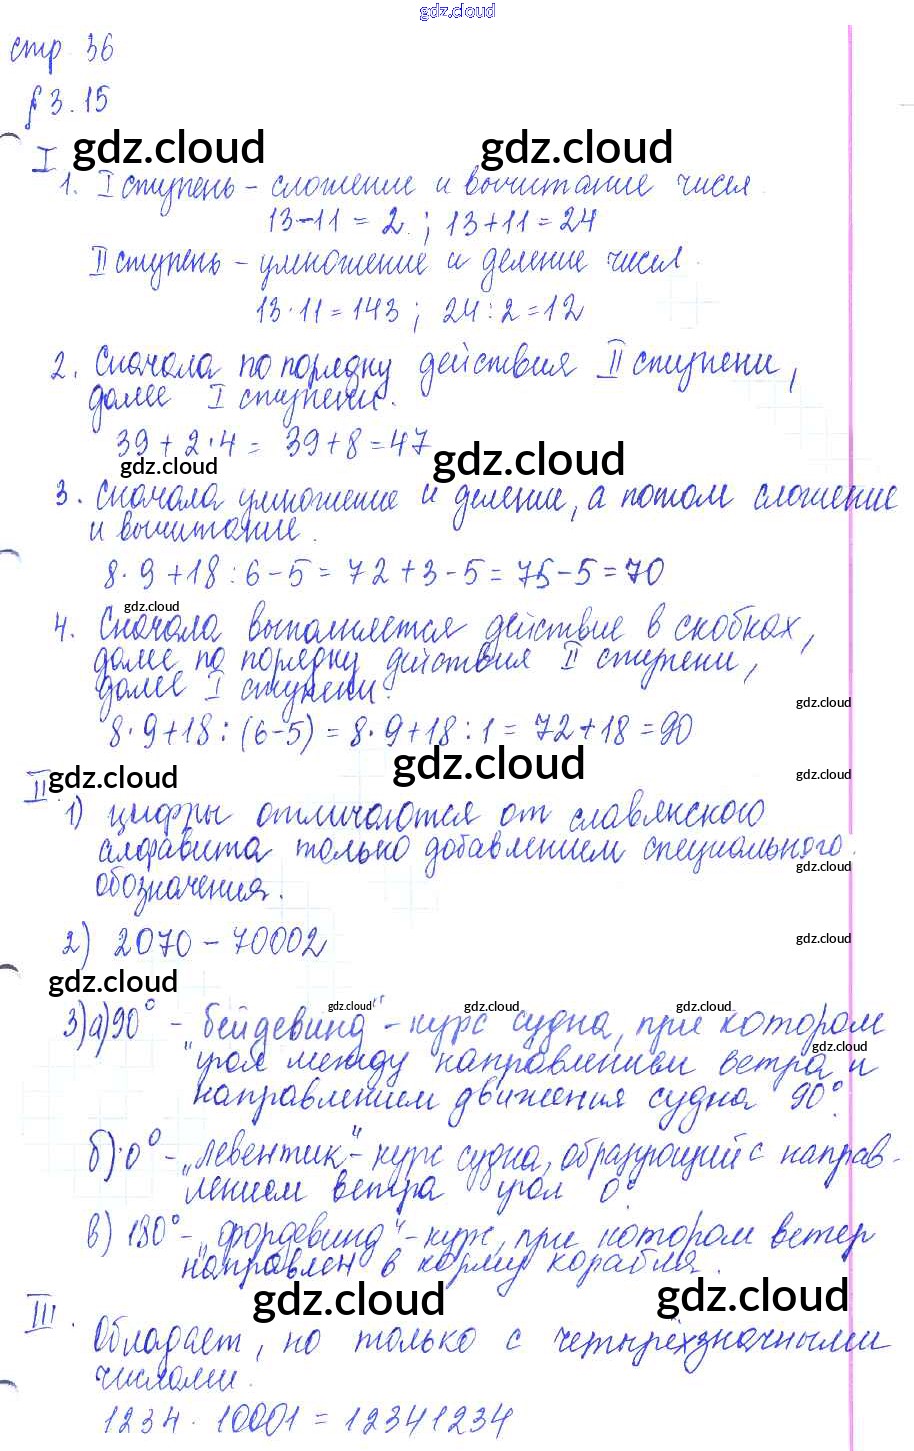 gdz.cloud
стр. 36
§ 3.15
gdz.cloud gdz.cloud
I
1. I ступень - сложение и вычитание чисел.
13-11 = 2 ; 13+11 = 24
II ступень - умножение и деление чисел.
13·11 = 143 ; 24:2 = 12
2. Сначала по порядку действия II ступени,
далее I ступени.
39 + 2·4 = 39+8 = 47
gdz.cloud gdz.cloud
3. Сначала умножение и деление, а потом сложение
и вычитание.
8·9+18:6-5 = 72+3-5 = 75-5 = 70
gdz.cloud
4. Сначала выполняется действие в скобках,
далее по порядку действия II ступени,
далее I ступени.
gdz.cloud
8·9+18:(6-5) = 8·9+18:1 = 72+18 = 90
gdz.cloud gdz.cloud gdz.cloud
II.
1) цифры отличаются от славянского
алфавита только добавлением специального
gdz.cloud
обозначения.
2) 2070 - 70002
gdz.cloud
gdz.cloud
gdz.cloud gdz.cloud gdz.cloud
3) а) 90° - "бейдевинд" - курс судна, при котором
gdz.cloud
угол между направлением ветра и
направлением движения судна 90°.
б) 0° - "левентик" - курс судна, образующий с направ-
лением ветра угол 0°.
в) 180° - "фордевинд" - курс, при котором ветер
направлен в корму корабля.
gdz.cloud gdz.cloud
III.
Обладает, но только с четырёхзначными
числами.
1234 · 10001 = 12341234